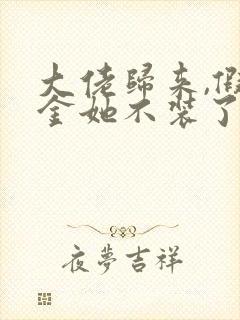 大佬歸来,假
金她不装了
夜夢吉祥